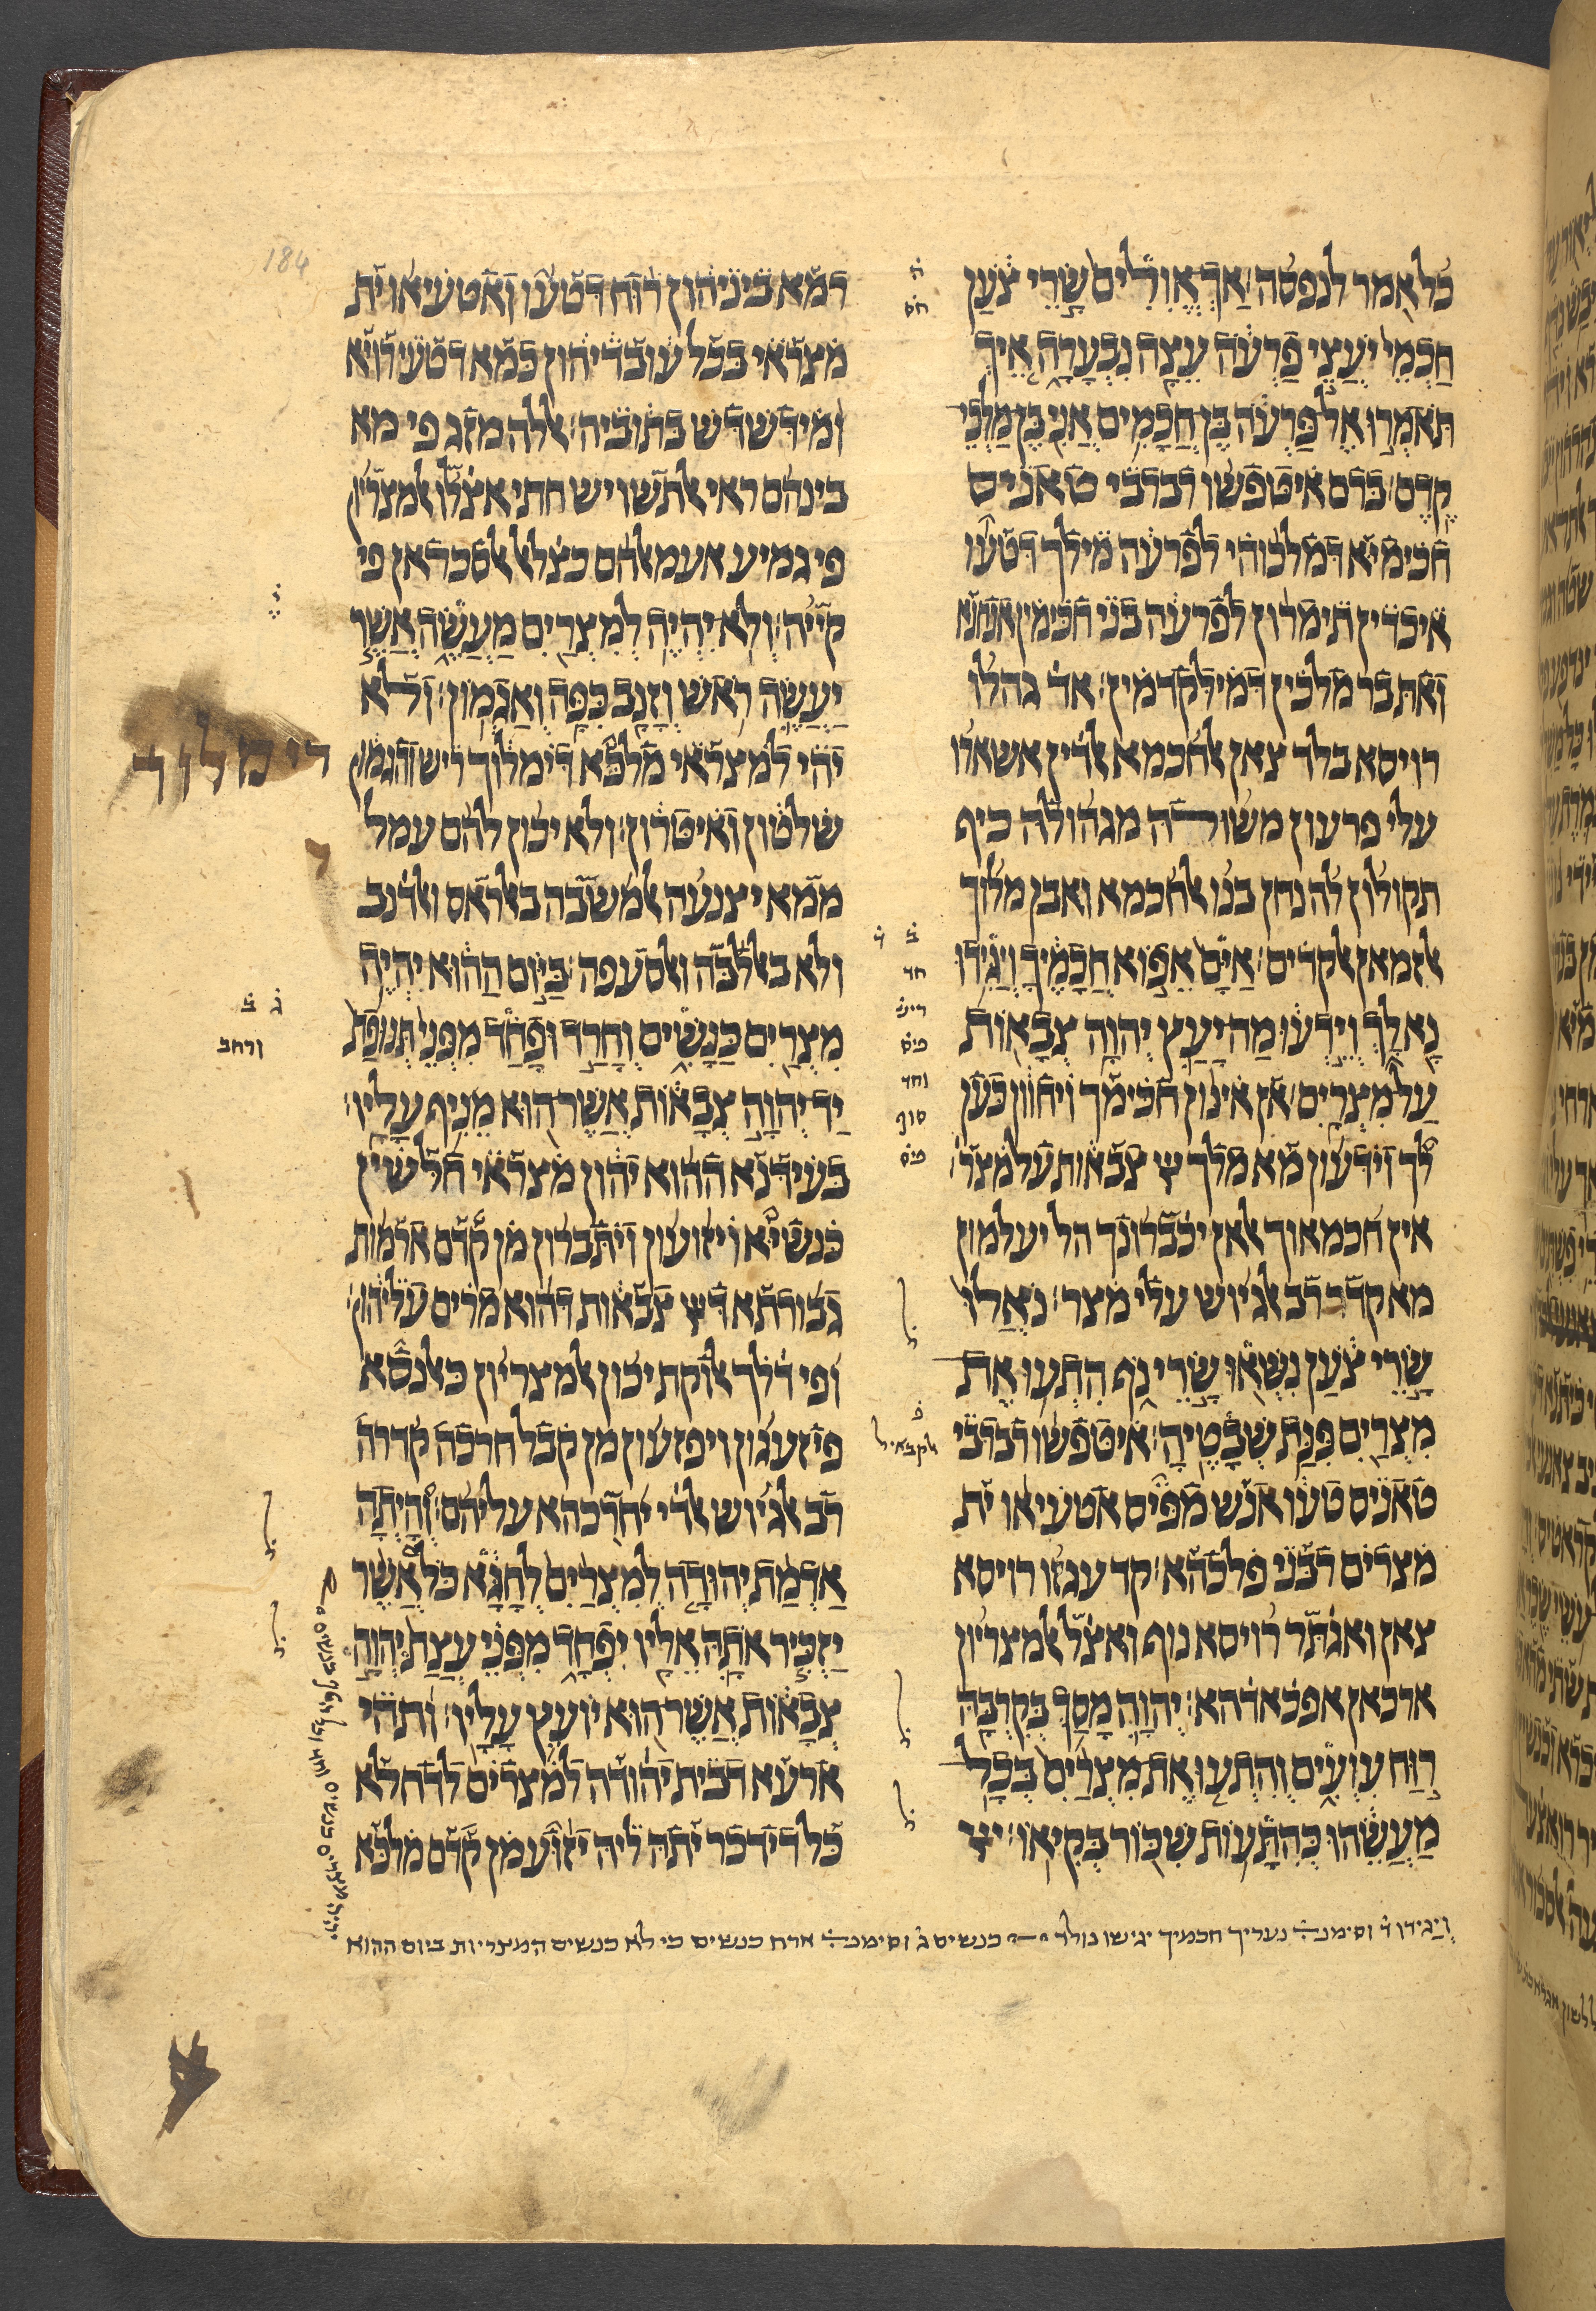 כל אמר לנפסה: אך אולים שרי צען
חכמי יעצי פרעה עצה נבערה איך
תאמרו אל פרעה בן חכמים אני בן מלכי
קדם: ברם איטפשו רברבי טאניס
חכימיא דמלכוהי לפרעה מילך דטעו
איכדין תימרון לפרעה בני חכימין אנחנא
ואת בר מלכין דמילקדמין: אד גהלו
רויסא בלד צאן אלחכמא אלדין אשארו
עלי פרעון משורה מגהולה כיף
תקולון לה נחן בנו אלחכמא ואבן מלוך
אלזמאן אלקדים: אים אפוא חכמיך ויגידו
נא לך וידעו מה יעץ יהוה צבאות
על מצרים: אן אינון חכימך ויחוון כען
לך וידעון מא מלך יי צבאות על מצר
אין חכמאוך אלאן יכברונך הל יעלמון
מא קדר רב אלגיוש עלי מצר: נואלו
שרי צען נשאו שרי נף התעו את
מצרים פנת שבטיה: איטפשו רברבי
טאניס טעו אנש מפיס אטעיאו ית
מצרים רבני פלכהא: קד עגזו רויסא
צאן ואגתר רויסא נוף ואצל אלמצריון
ארכאן אפכאדהא: יהוה מסך בקרבה
רוח עועים והתעו את מצרים בכל
מעשהו כהתעות שכור בקיאו: יי
רמא ביניהון רוח דטעו ואטעיאו ית
מצראי בכל עובדיהון כמא דטעי רויא
ומידשדש בתוביה: אללה מזג פי מא
בינהם ראי אלתשויש חתי אצלו אלמצריון
פי גמיע אעמאלהם כצלאל אלסכראן פי
קייה: ולא יהיה למצרים מעשה אשר
יעשה ראש וזנב כפה ואגמון: ולא
יהי למצראי מלכא דימלוך ריש והגמון
שלטון ואיטרון: ולא יכון להם עמל
ממא יצנעה אלמשבה באלראס ואלדנב
ולא באלכבה ואלסעפה: ביום ההוא יהיה
מצרים כנשים וחרד ופחד מפני תנופת
יד יהוה צבאות אשר הוא מניף עליו:
בעידנא ההוא יהון מצראי חלשין
כנשיא ויזועון ויתברון מן קדם ארמות
גבורתא דיי צבאות דהוא מרים עליהון:
ופי דלך אלוקת יכון אלמצריון כאלנסא
פיזעגון ויפזעון מן קבל חרכה קדרה
רב אלגיוש אלדי יחרכהא עליהם: והיתה
אדמת יהודה למצרים לחגא כל אשר
יזכיר אתה אליו יפחד מפני עצת יהוה
צבאות אשר הוא יועץ עליו: ותהי
ארעא דבית יהודה למצרים לדחלא
כל דידכר יתה ליה יזוע מן קדם מלכא
184
דימלוך
ורחב
חס
סוף
ויגידו ד וסימנ נעריך חכמיך יגישו כנשים ג וסימנ ארח כנשים כי לא כנשים המצריות ביום ההוא
יהיה מצרים כנשים